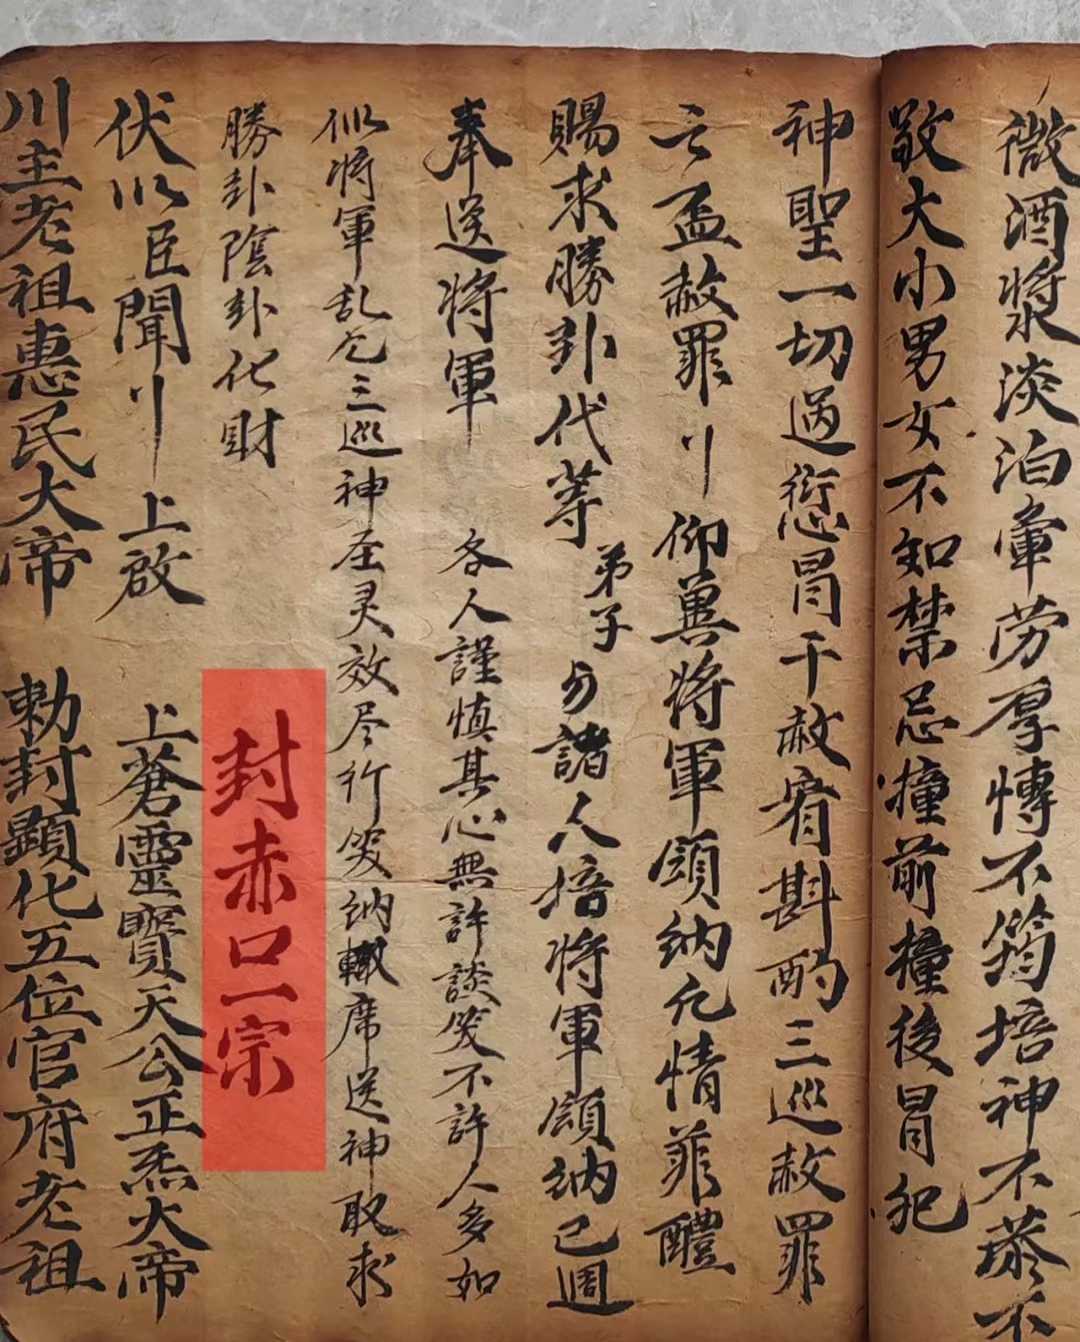 微酒漿淡泊奠劳厚愽不筠培神不恭不
敬大小男女不知禁忌撞前撞後冒犯
神聖一切過愆冒干赦宥斟酌三巡赦罪
云孟赦罪〢仰兾将軍領纳允情菲醴
賜求勝卦代等弟子勹諸人掊将軍領纳已週
奉送将軍 各人謹慎其心無許談笑不許人多如
似将軍乱乞三巡神圣灵效尽行笑納轍席送神取求
勝卦陰卦化財
封赤口一宗
伏以臣聞〢上啟 上蒼靈寶天公正炁大帝
川主老祖惠民大帝 勅封顕化五位官府老祖